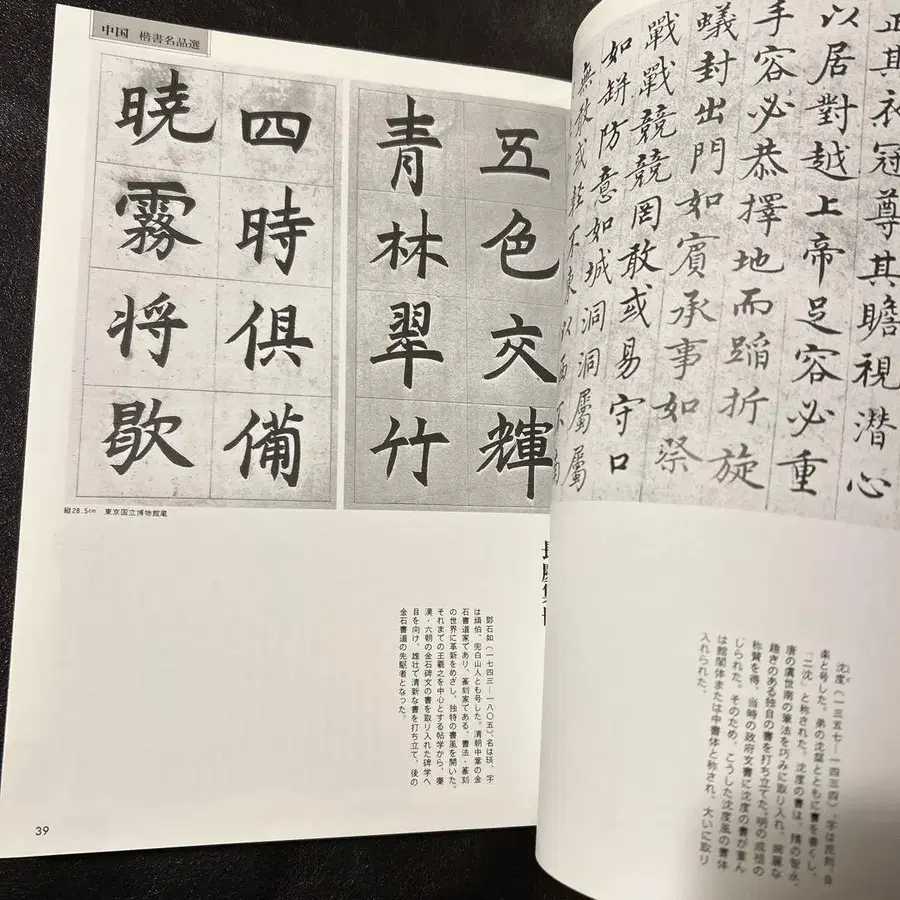 正其衣冠尊其瞻視潜心
以居對越上帝足容必重
手容必恭擇地而蹈折旋
蟻封出門如賓承事如祭
戰戰競競罔敢或易守口
如缾防意如城洞洞屬屬
無敢或軽不東以西不南
沈度(一三五七―一四三四)、字は民則、自
楽と号した。弟の沈粲とともに書を善くし、
「二沈」と称された。沈度の書は、隋の智永、
唐の虞世南の筆法を巧みに取り入れ、婉麗な
趣きのある独自の書を打ち立てた。明の成祖の
称賛を得、当時の政府文書に沈度の書が重ん
じられた。そのため、こうした沈度風の書体
は館閣体または中書体と称され、大いに取り
入れられた。
中国 楷書名品選
五色交輝
青林翠竹
四時俱備
暁霧将歇
縦28.5cm 東京国立博物館蔵
鄧石如(一七四三―一八〇五)、名は琰、字
は頑伯、完白山人とも号した。清朝中葉の金
石書道家であり、篆刻家である。書法・篆刻
の世界に革新をめざし、独特の書風を開いた。
それまでの王羲之を中心とする帖学から、秦
漢・六朝の金石碑文の書を取り入れた碑学へ
目を向け、雄壮で清新な書を打ち立て、後の
金石書道の先駆者となった。
39